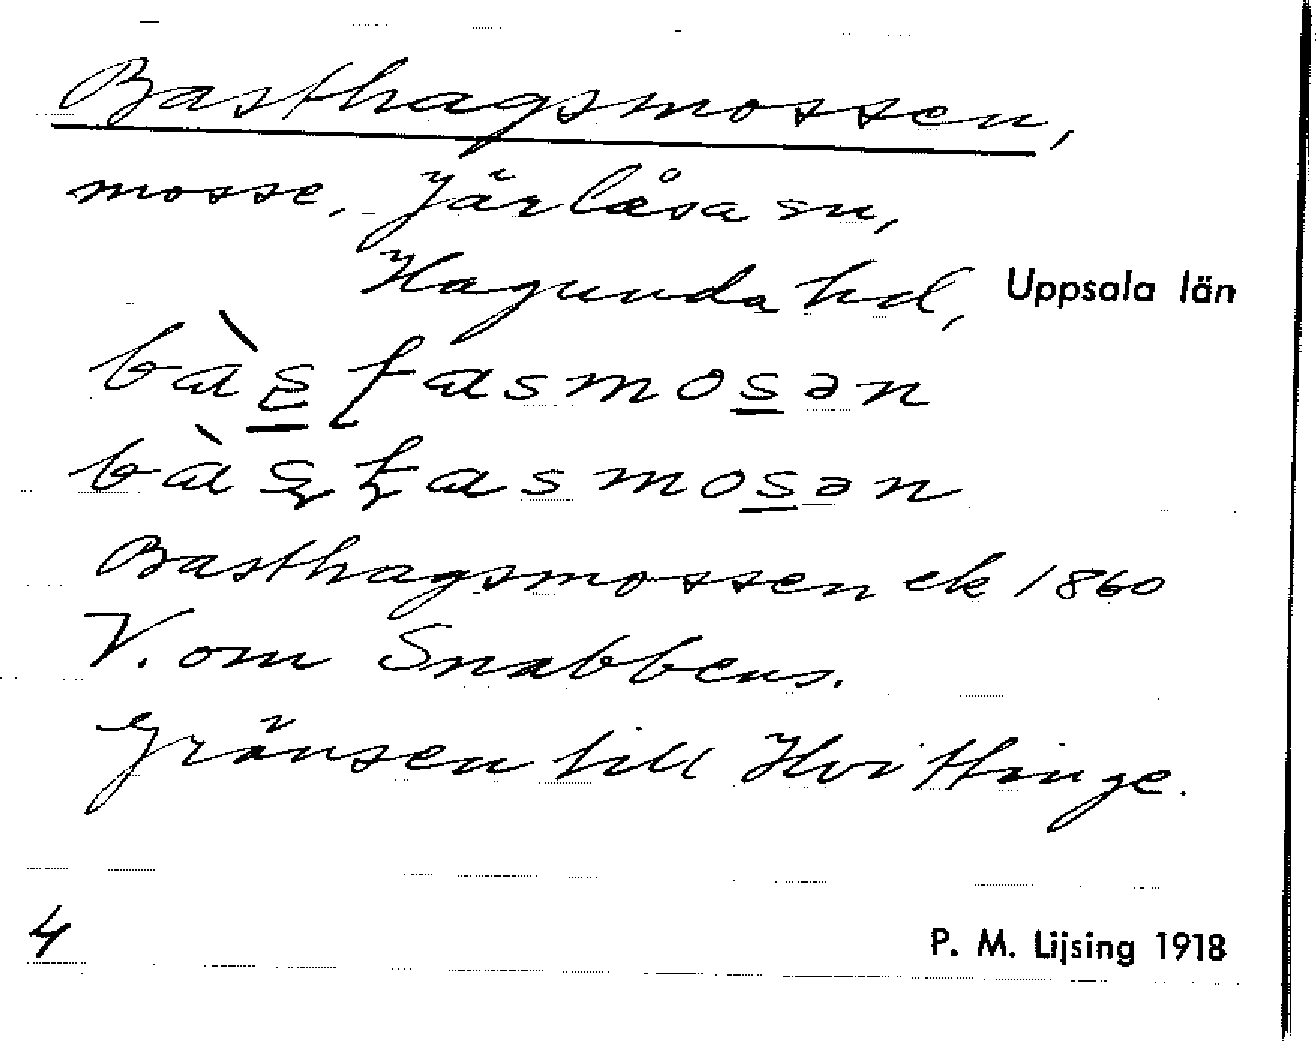 Basthagsmossen,
mosse, Järlåsa sn,
Hagunda hd, Uppsala län
bàs̲tasmos̲ən
bàstasmos̲ən
Basthagsmossen ek 1860
V. om Snabbens.
Gränsen till Hvittinge.
4 P. M. Lijsing 1918